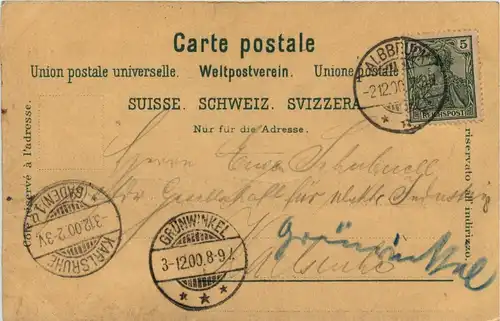 Carte postale
Union postale universelle. Weltpostverein. Unione postale
SUISSE. SCHWEIZ. SVIZZERA
Nur für die Adresse.
Côté réservé à l'adresse.
riservato all'indirizzo.
ALBBRUCK
-2.12.00.
5
REICHSPOST
Herrn
Gesellschaft für elektr. Industrie
Grünwinkel
KARLSRUHE
(BADEN)
3.12.00.2-3V.
GRÜNWINKEL
3-12.00.8-9V.